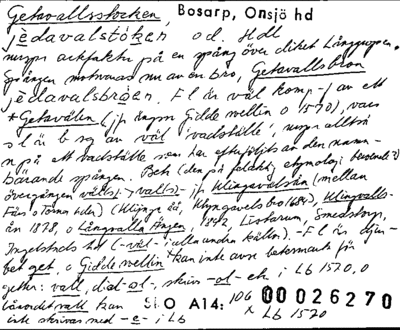 Getavallsstocken, Bosarp, Onsjö hd
jèdavalstòken od. Hdl
uppe på en spång över diket Långgropen.
Spången motsvaras nu av en bro, Getavallsbron
jèdavalsbròen. F l är väl komp. av ett
*Getavålen (jfr Gidde wellin o 1570), vars
s l är b sg av väl 'vadställe', uppe alltså
n på ett vadställe som har efterföljts av den namn-
bärande spången. Bet. (den på felaktig etymologi beroende?)
övergången vål(s)- > vall(s)- jfr Klingavälsån (mellan
Färs o Torna hdr) (Klinge åå, Klyngavels bro 1684), Klingvalls-
ån 1878, o Långvalla ängen, 1842, Listarum, Smedstorp,
Ingelstads hd (-väl- i alla andra källor). - F l är djur-
bet. get, o Gidde wellin kan inte avse betesmark för
getter: vall, dial -ol-, skrivs -ol- etc i Lb 1570, o
kan S:O A14: 106 00026270
inte skrivas med -e- i Lb x Lb 1570